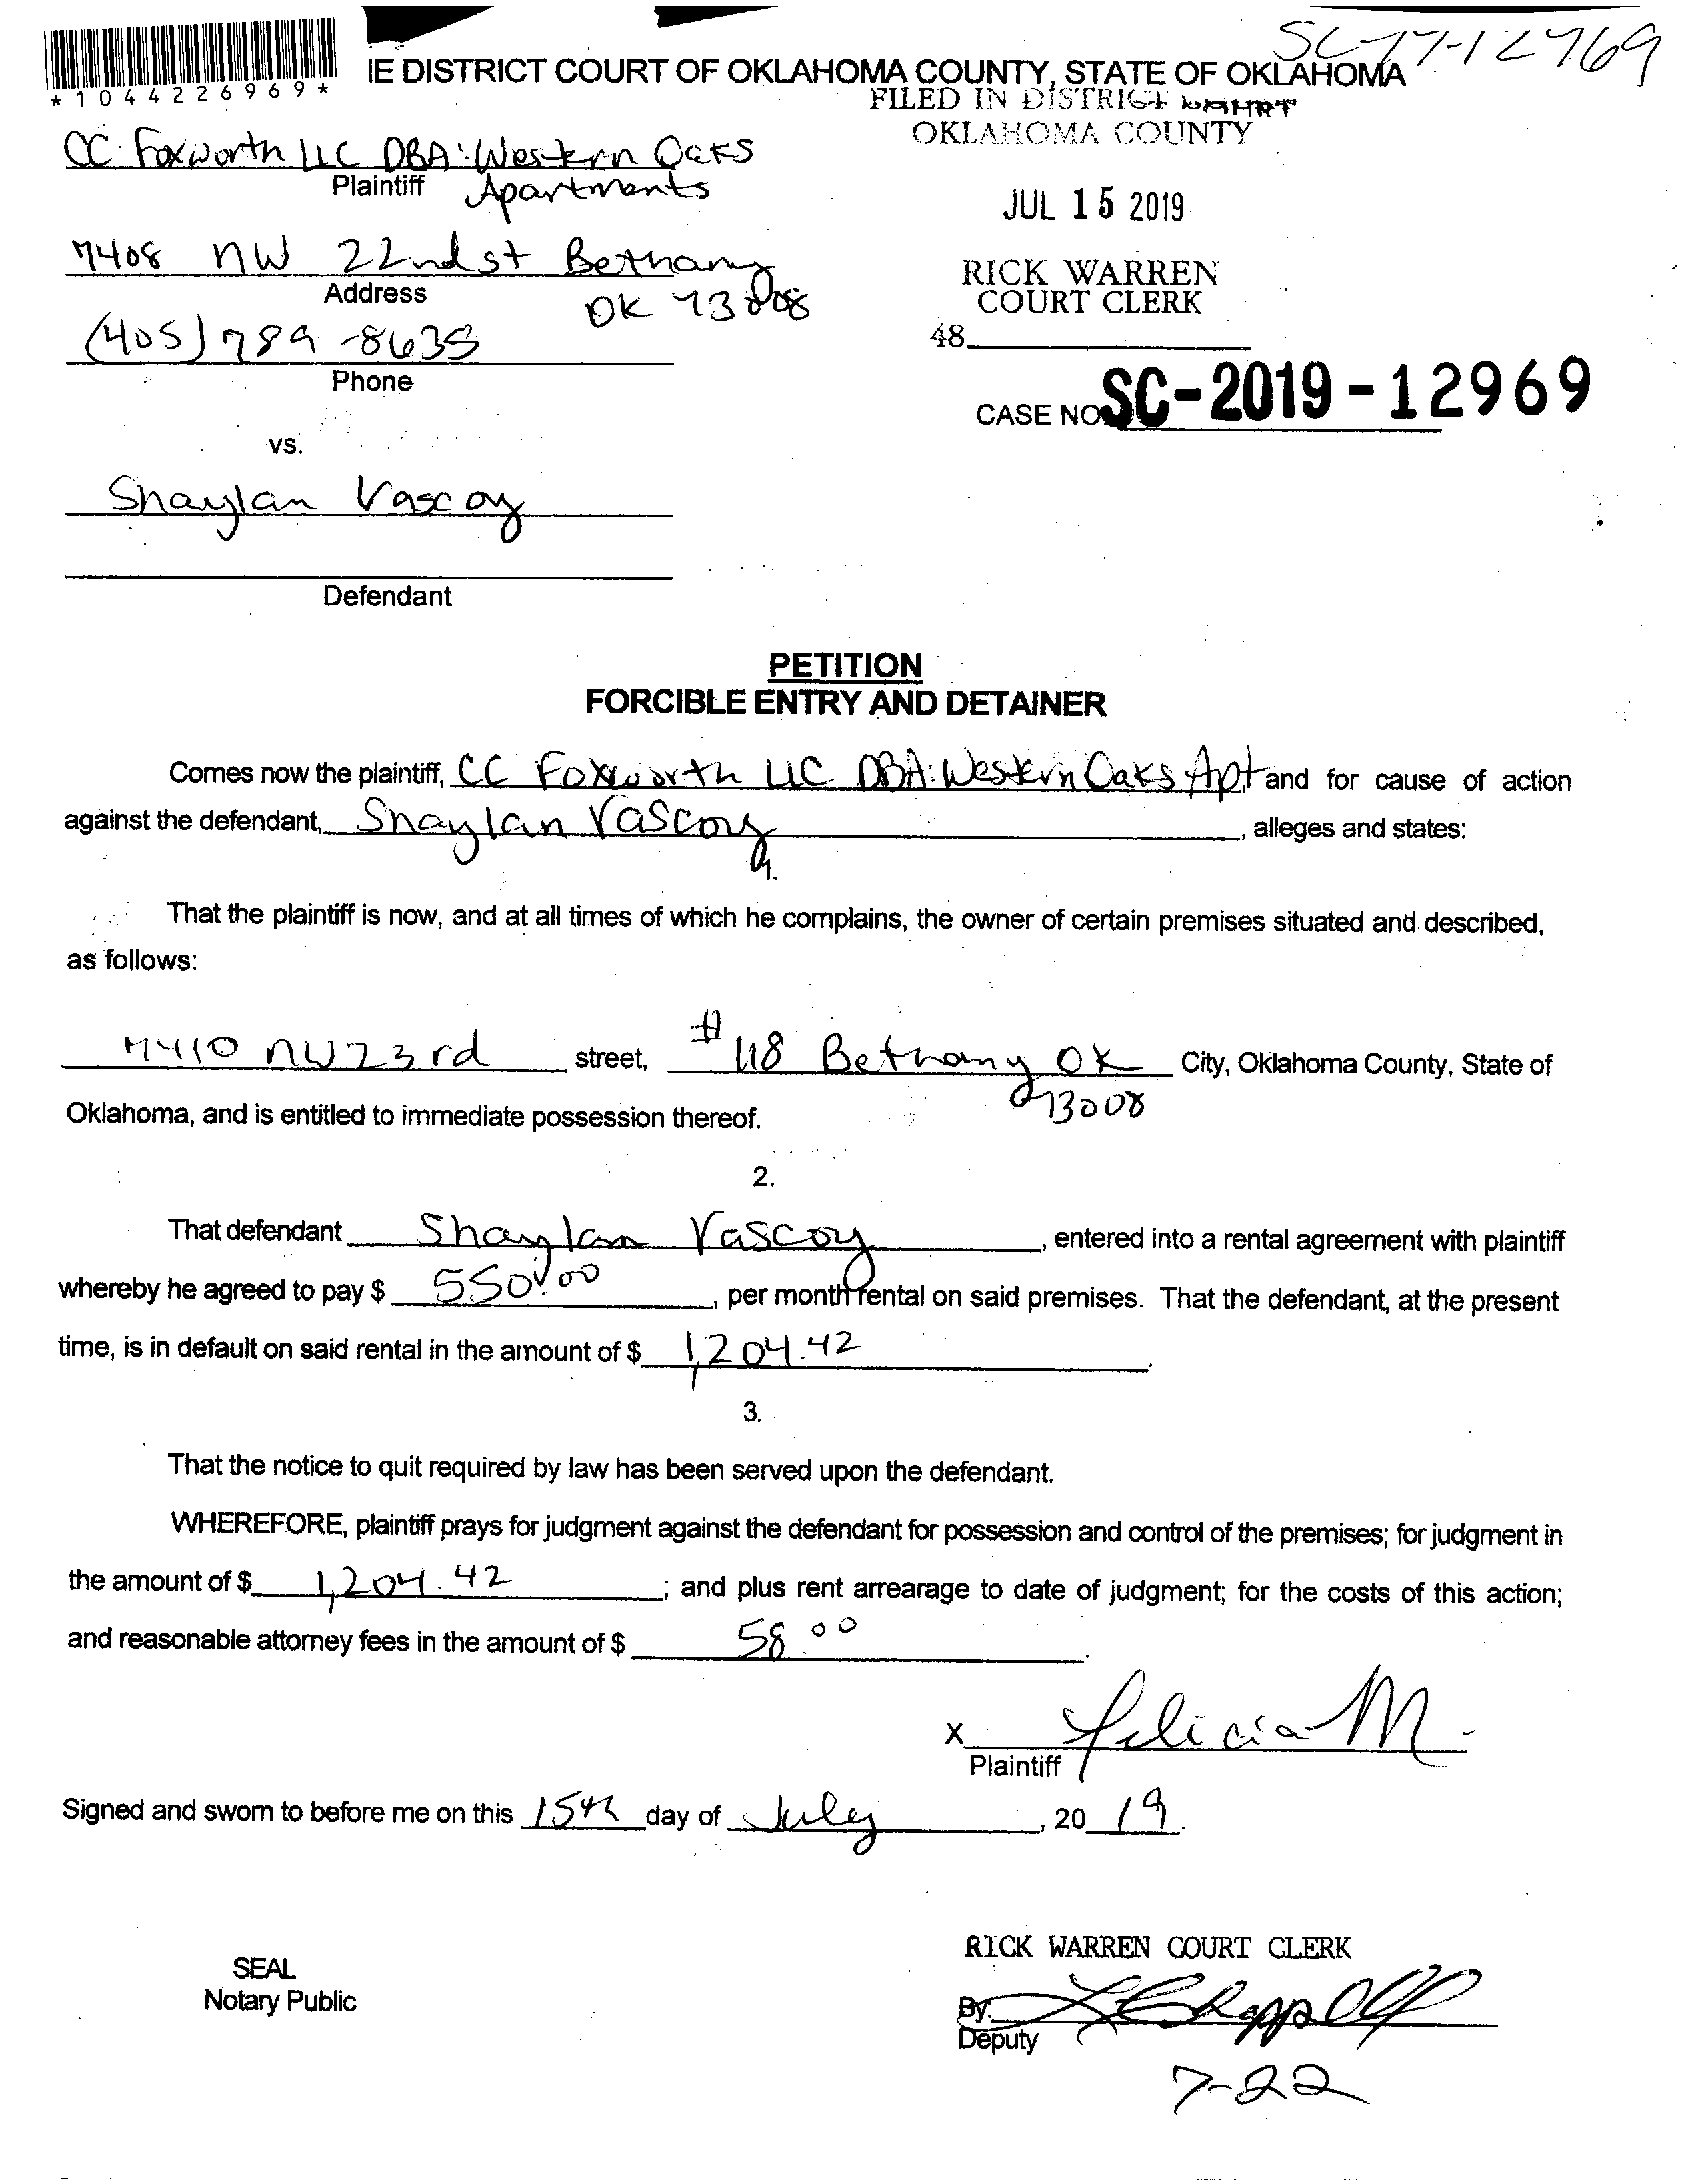 SC-19-12969
*1044226969*
IE DISTRICT COURT OF OKLAHOMA COUNTY, STATE OF OKLAHOMA
FILED IN DISTRICT COURT
OKLAHOMA COUNTY
CC Foxworth LLC DBA: Western Oaks
Plaintiff Apartments
JUL 15 2019
7408 NW 22nd st Bethany
Address OK 73008
RICK WARREN
COURT CLERK
(405) 789-8635
48
Phone
CASE NO SC-2019-12969
vs.
Shaylan Vascoy
Defendant
PETITION
FORCIBLE ENTRY AND DETAINER
Comes now the plaintiff, CC Foxworth LLC DBA: Western Oaks Apt and for cause of action
against the defendant, Shaylan Vascoy, alleges and states:
1.
That the plaintiff is now, and at all times of which he complains, the owner of certain premises situated and described,
as follows:
7410 NW 23rd street, #118 Bethany OK City, Oklahoma County, State of
73008
Oklahoma, and is entitled to immediate possession thereof.
2.
That defendant Shaylan Vascoy, entered into a rental agreement with plaintiff
whereby he agreed to pay $ 550.00, per month rental on said premises. That the defendant, at the present
time, is in default on said rental in the amount of $ 1,204.42.
3.
That the notice to quit required by law has been served upon the defendant.
WHEREFORE, plaintiff prays for judgment against the defendant for possession and control of the premises; for judgment in
the amount of $ 1,204.42; and plus rent arrearage to date of judgment; for the costs of this action;
and reasonable attorney fees in the amount of $ 58.00.
X Felicia M.
Plaintiff
Signed and sworn to before me on this 15th day of July, 2019.
RICK WARREN COURT CLERK
SEAL
Notary Public
By:
Deputy
7-22